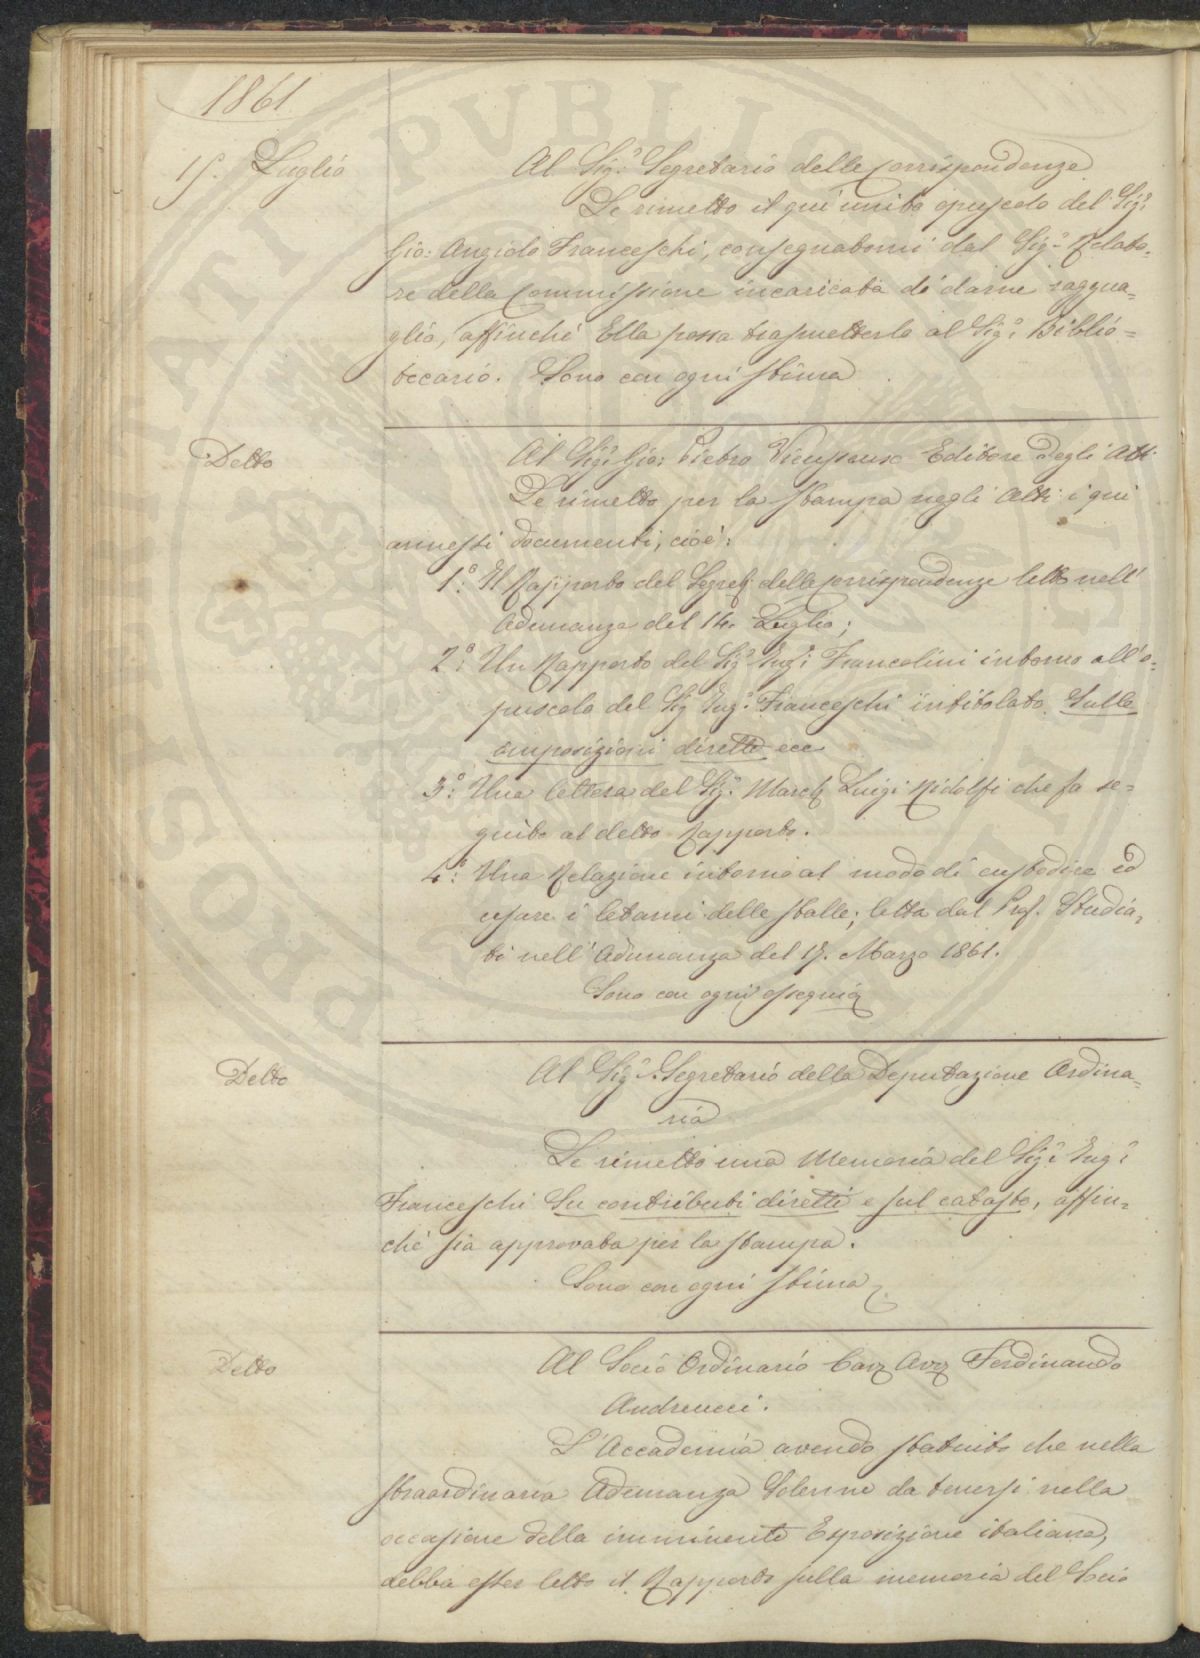 1861
15. Luglio
Al Sig.r Segretario delle Corrispondenze
Le rimetto il qui unito opuscolo del Sig.r
Gio: Angiolo Franceschi, consegnatomi dal Sig.r Relato=
re della Commissione incaricata di darne raggua=
glio, affinché Ella possa trasmetterlo al Sig.r Biblio=
tecario. Sono con ogni stima
Detto
Al Sig.r Gio: Pietro Vieusseux Editore degli Atti
Le rimetto per la stampa negli Atti i qui
annessi documenti, cioè:
1.° Il Rapporto del Segret. delle Corrispondenze letto nell'
Adunanza del 14. Luglio;
2.° Un Rapporto del Sig.r Ing.r Francolini intorno all'o=
puscolo del Sig. Ing.r Franceschi intitolato Sulle
imposizioni dirette ecc
3.° Una lettera del Sig.r March. Luigi Ridolfi che fa se=
guito al detto Rapporto.
4.° Una Relazione intorno al modo di custodire ed
usare i letami delle stalle; letta dal Prof. Studia=
ti nell'Adunanza del 17. Marzo 1861.
Sono con ogni ossequio
Detto
Al Sig.r Segretario della Deputazione Ordina=
ria
Le rimetto una Memoria del Sig.r Ing.r
Franceschi Su contributi diretti e sul catasto, affin=
ché sia approvata per la stampa.
Sono con ogni stima
Detto
Al Socio Ordinario Cav. Avv. Ferdinando
Andreucci.
L'Accademia avendo statuito che nella
straordinaria Adunanza Solenne da tenersi nella
occasione della imminente Esposizione italiana,
debba esser letto il Rapporto sulla memoria del Socio